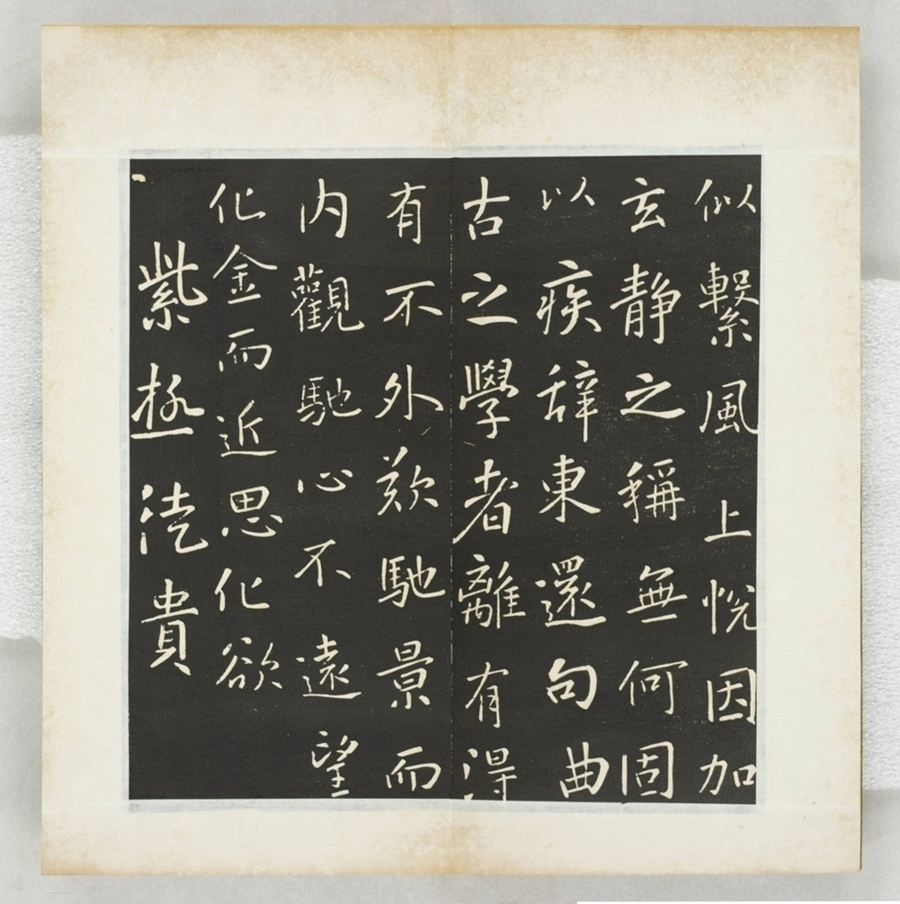 似繫風上悅因加
玄靜之稱無何固
以疾辭東還句曲
古之學者離有得
有不外欺馳景而
内觀馳心不遠望
化金而近思化欲
紫極法貴